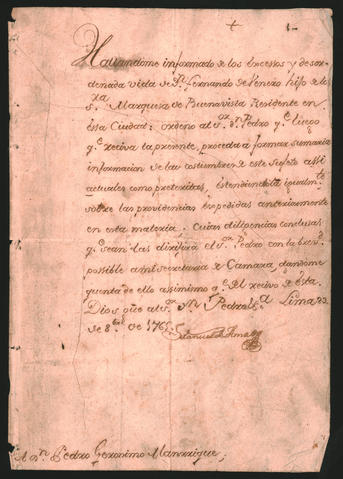 Haviendome informado de los excessos y desor-
denada vida de Dn. Fernando de Venero hijo de la
Sra. Marquesa de Buenavista Residente en
ésta Ciudad: ordeno al Sor. Dn. Pedro qe. luego
qe. reciva la presente, proceda a formar sumaria
informacion de las costumbres de este sugeto assi
actuales como preteritas, estendiendola igualmte.
sobre las providencias expedidas anteriormente
en esta materia. Cuias diligencias conclusas
qe. sean las dirijirá el Sor. Pedro con la brevd.
possible a mi secretaria de Camara, dandome
quenta de ello assimismo qe. el recivo de ésta
Dios gûe al Sor. Dn. Pedro Lima 22
de 8bre. de 176
Manuel de Amat
A Dn. Pedro Geronimo Manrrique;